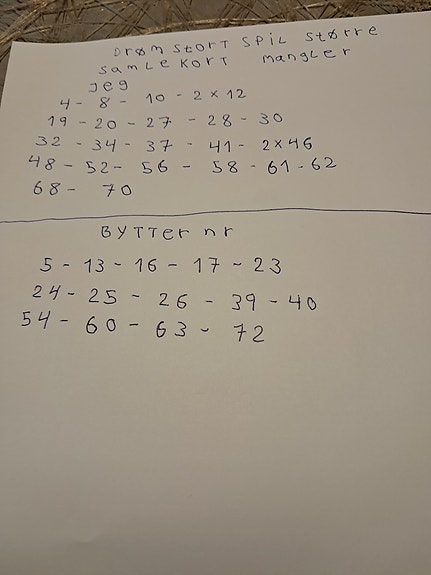 Drøm stort spil større
samle kort mangler
jeg
4 - 8 - 10 - 2 x 12
19 - 20 - 27 - 28 - 30
32 - 34 - 37 - 41 - 2x46
48 - 52 - 56 - 58 - 61 - 62
68 - 70
Bytter nr
5 - 13 - 16 - 17 - 23
24 - 25 - 26 - 39 - 40
54 - 60 - 63 - 72